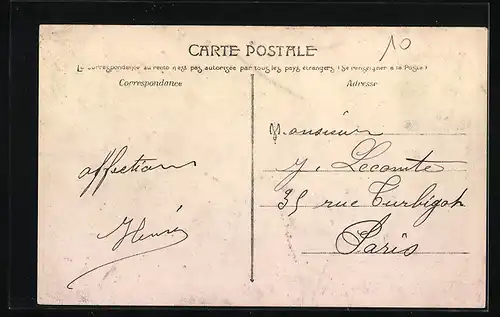 CARTE POSTALE
10
La correspondance au recto n'est pas autorisée par tous les pays étrangers (Se renseigner à la Poste)
Correspondance
Adresse
affection
Henri
Monsieur
J. Lecomte
35 rue Turbigot
Paris